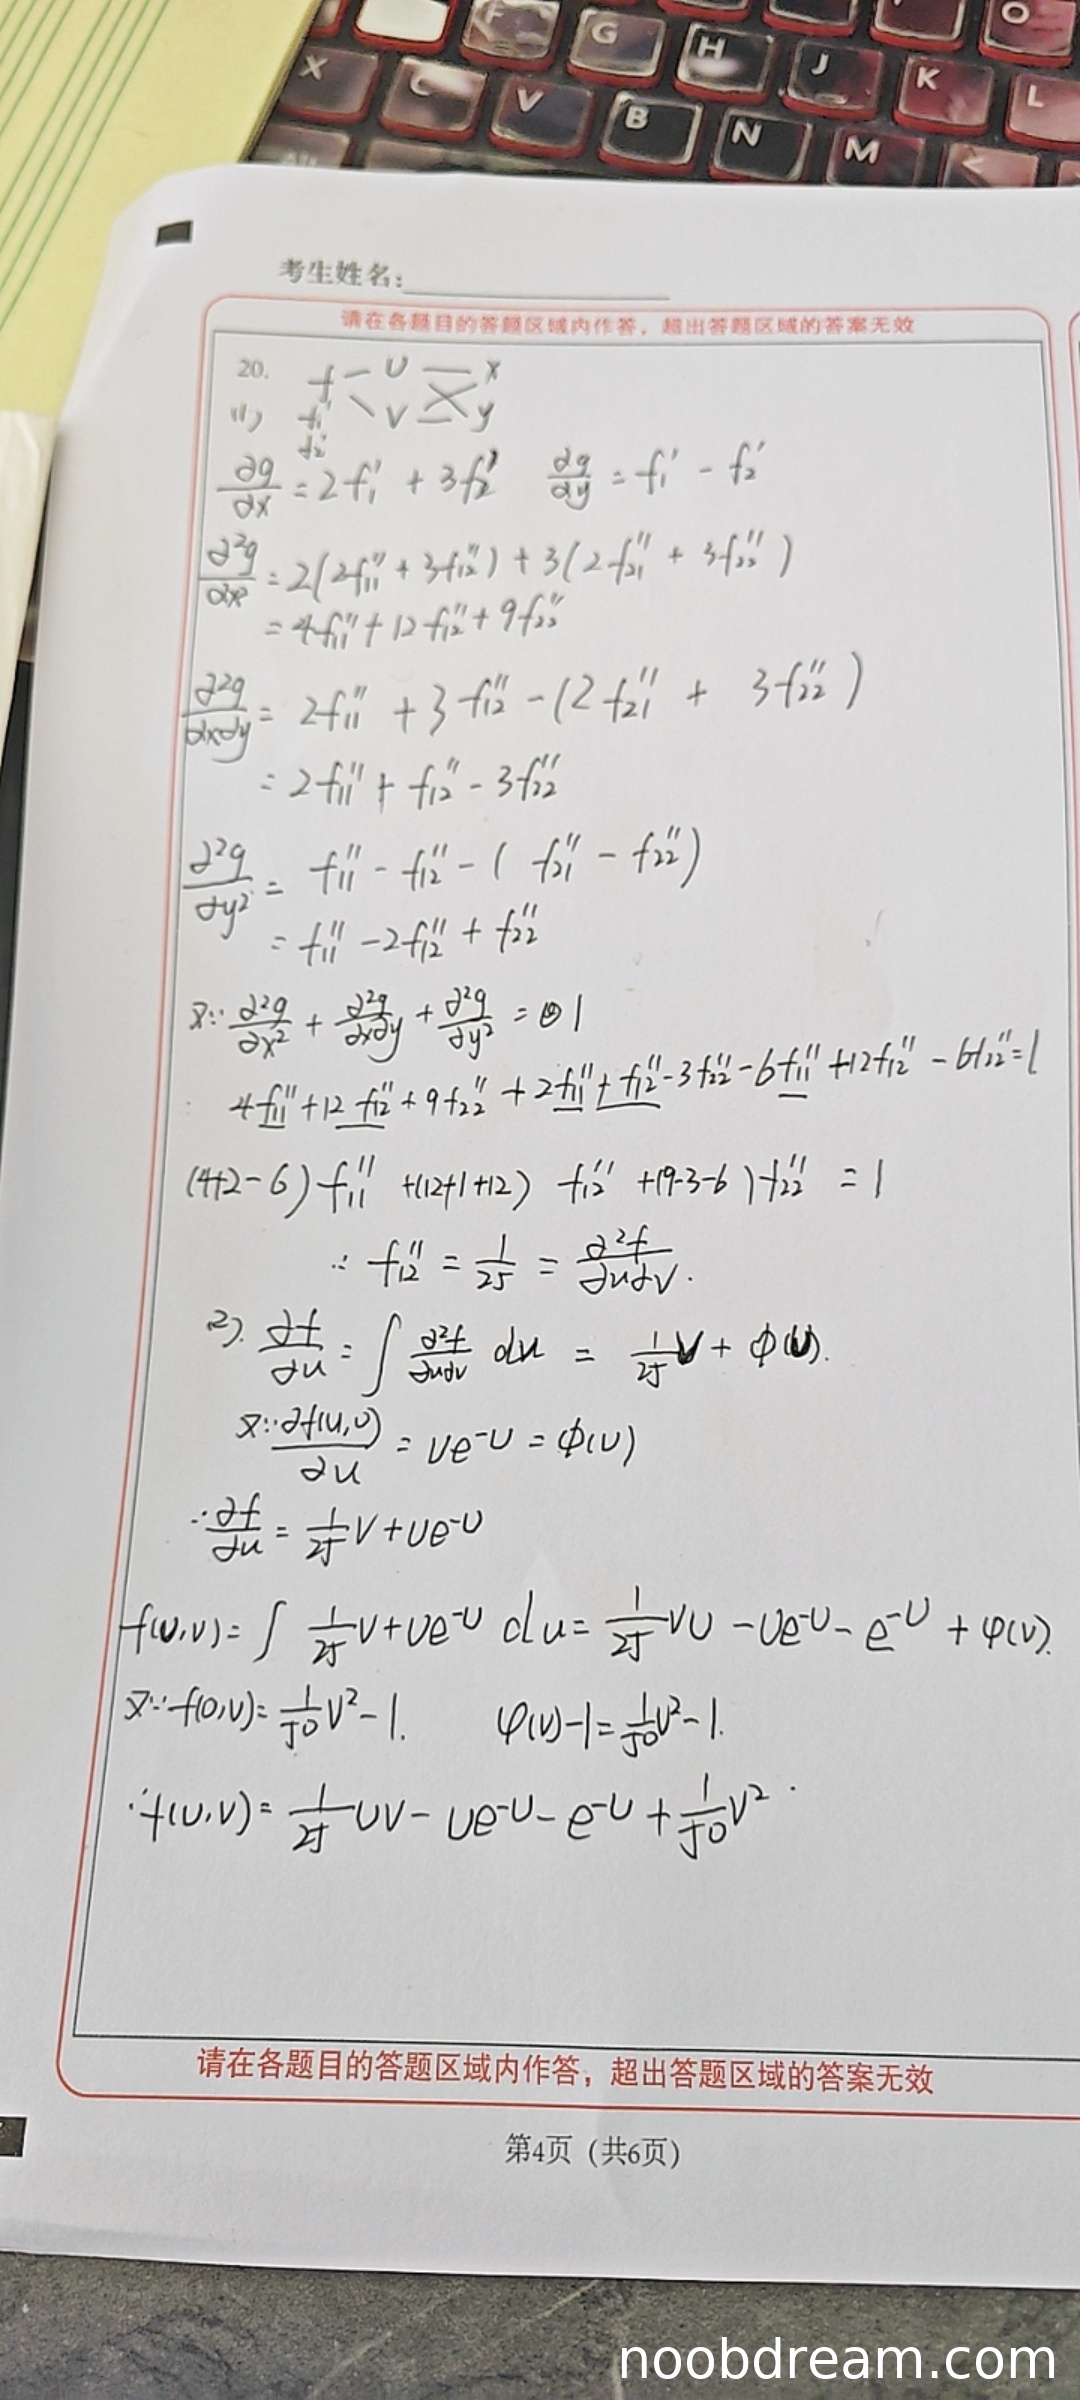 F G H J K L O
X C V B N M <
Alt
考生姓名:
请在各题目的答题区域内作答，超出答题区域的答案无效
20. f — u — x
(1) f₁' v y
f₂'
∂g/∂x = 2f₁' + 3f₂' ∂g/∂y = f₁' - f₂'
∂²g/∂x² = 2(2f₁₁'' + 3f₁₂'') + 3(2f₂₁'' + 3f₂₂'')
= 4f₁₁'' + 12f₁₂'' + 9f₂₂''
∂²g/∂x∂y = 2f₁₁'' + 3f₁₂'' - (2f₂₁'' + 3f₂₂'')
= 2f₁₁'' + f₁₂'' - 3f₂₂''
∂²g/∂y² = f₁₁'' - f₁₂'' - (f₂₁'' - f₂₂'')
= f₁₁'' - 2f₁₂'' + f₂₂''
又∵ ∂²g/∂x² + ∂²g/∂x∂y + ∂²g/∂y² = 1
4f₁₁'' + 12f₁₂'' + 9f₂₂'' + 2f₁₁'' + f₁₂'' - 3f₂₂'' - 6f₁₁'' + 12f₁₂'' - 6f₂₂'' = 1
(4+2-6)f₁₁'' + (12+1+12) f₁₂'' + (9-3-6)f₂₂'' = 1
∴ f₁₂'' = 1/25 = ∂²f/∂u∂v.
(2). ∂f/∂u = ∫ ∂²f/∂u∂v du = 1/25 v + φ(u).
又∵ ∂f(u,0)/∂u = ue^-u = φ(u)
∴ ∂f/∂u = 1/25 v + ue^-u
f(u,v) = ∫ 1/25 v + ue^-u du = 1/25 vu - ue^-u - e^-u + φ(v).
又∵ f(0,v) = 1/50 v² - 1. φ(v) - 1 = 1/50 v² - 1.
∴ f(u,v) = 1/25 uv - ue^-u - e^-u + 1/50 v²
请在各题目的答题区域内作答，超出答题区域的答案无效
第4页（共6页）
noobdream.com